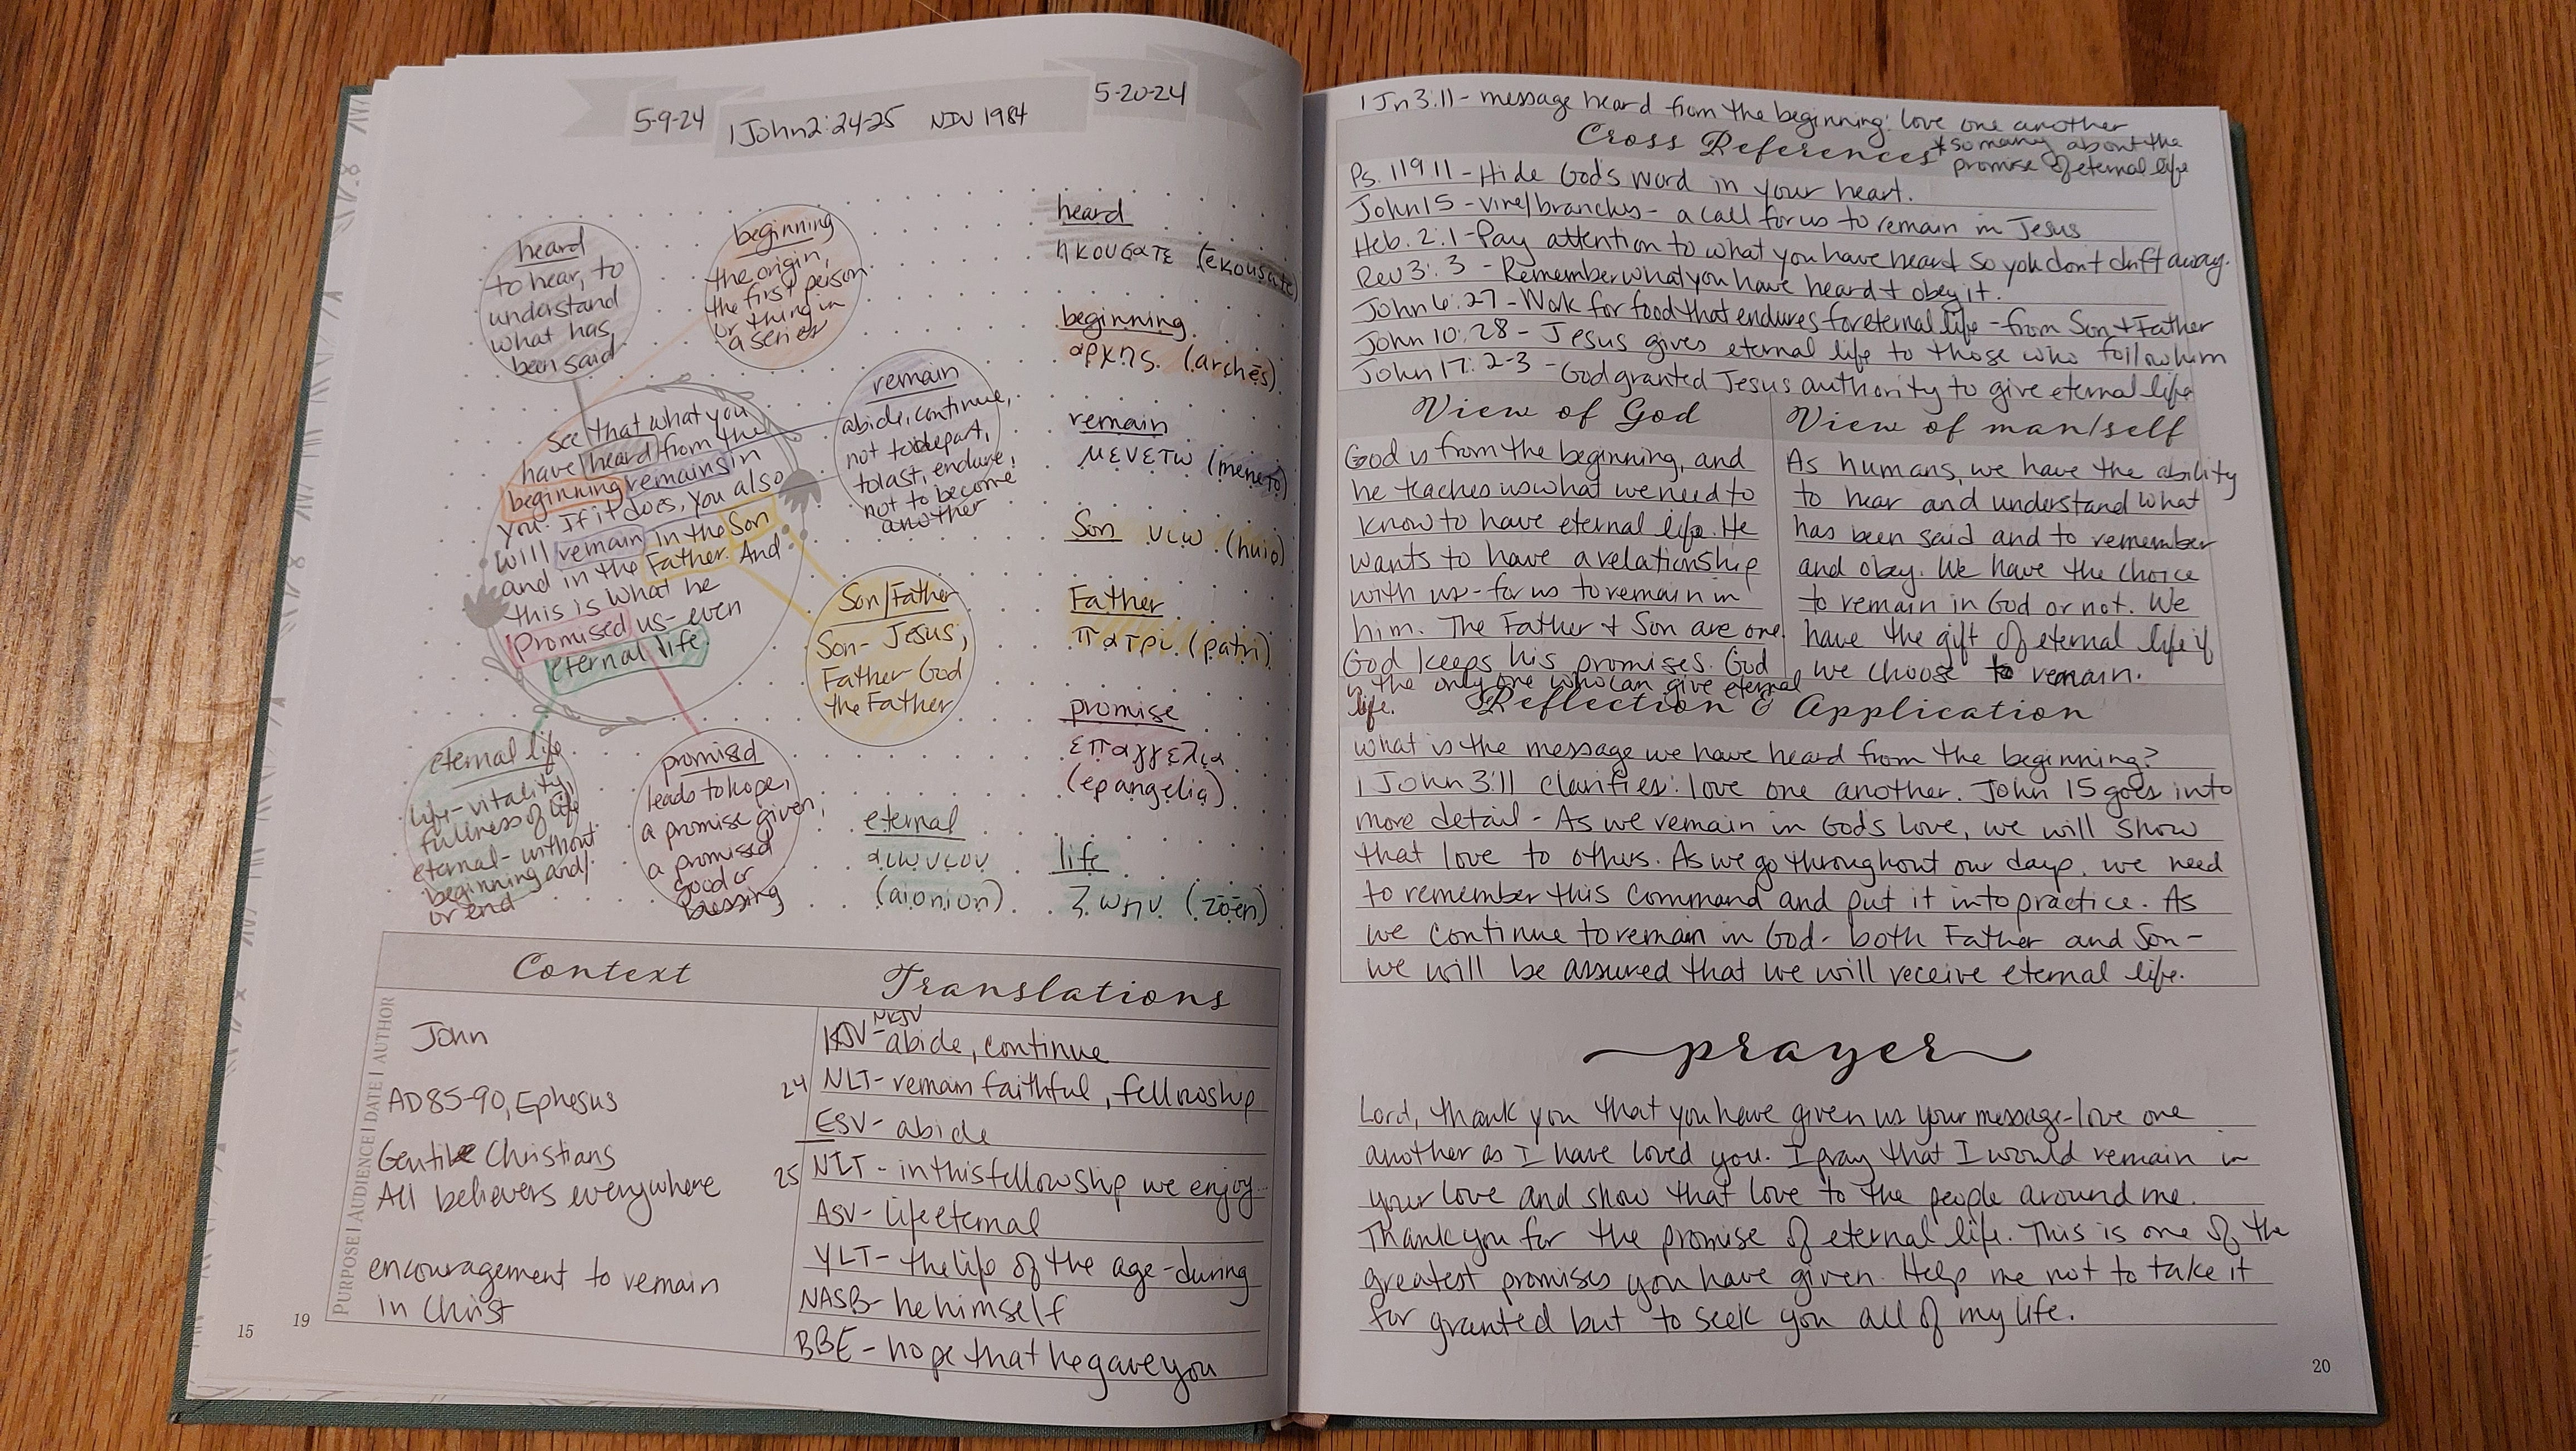 5-9-24
1 John 2:24-25 NIV 1984
5-20-24
heard
to hear, to
understand
what has
been said
beginning
the origin,
the first person
or thing in
a series
remain
abide, continue,
not to depart,
to last, endure,
not to become
another
See that what you
have heard from the
beginning remains in
you. If it does, you also
will remain in the Son
and in the Father. And
this is what he
promised us - even
eternal life.
Son/Father
Son - Jesus,
Father - God
the Father
eternal life
life - vitality,
fullness of life
eternal - without
beginning and/
or end
promised
leads to hope,
a promise given,
a promised
good or
blessing
heard
ηκουσατε (ēkousate)
beginning
αρχης (archēs)
remain
μενετω (menetō)
Son υιω (huiō)
Father
πατρι (patri)
promise
επαγγελια
(epangelia)
eternal
αιωνιον
(aiōnion)
life
ζωην (zōēn)
Context
PURPOSE | AUDIENCE | DATE | AUTHOR
John
AD 85-90, Ephesus
Gentile Christians
All believers everywhere
encouragement to remain
in Christ
Translations
NKJV
KJV - abide, continue
24 NLT - remain faithful, fellowship
ESV - abide
25 NLT - in this fellowship we enjoy...
ASV - life eternal
YLT - the life of the age-during
NASB - he himself
BBE - hope that he gave you
15
19
1 Jn 3:11 - message heard from the beginning: love one another
Cross References
*so many about the
promise of eternal life
Ps. 119 11 - Hide God's word in your heart.
John 15 - vine/branches - a call for us to remain in Jesus
Heb. 2:1 - Pay attention to what you have heard so you don't drift away.
Rev 3:3 - Remember what you have heard + obey it.
John 6:27 - Work for food that endures for eternal life - from Son + Father
John 10:28 - Jesus gives eternal life to those who follow him
John 17:2-3 - God granted Jesus authority to give eternal life
View of God
God is from the beginning, and
he teaches us what we need to
know to have eternal life. He
wants to have a relationship
with us - for us to remain in
him. The Father + Son are one.
God keeps his promises. God
is the only one who can give eternal
life.
View of man/self
As humans, we have the ability
to hear and understand what
has been said and to remember
and obey. We have the choice
to remain in God or not. We
have the gift of eternal life if
we choose to remain.
Reflection & Application
What is the message we have heard from the beginning?
1 John 3:11 clarifies: love one another. John 15 goes into
more detail - As we remain in God's love, we will show
that love to others. As we go throughout our days, we need
to remember this command and put it into practice. As
we continue to remain in God - both Father and Son -
we will be assured that we will receive eternal life.
prayer
Lord, thank you that you have given us your message - love one
another as I have loved you. I pray that I would remain in
your love and show that love to the people around me.
Thank you for the promise of eternal life. This is one of the
greatest promises you have given. Help me not to take it
for granted but to seek you all of my life.
20